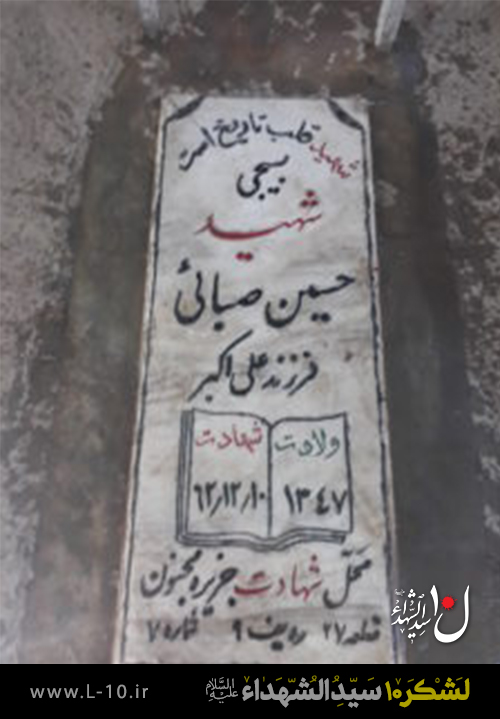 شهید قلب تاریخ است
بسیجی
شهید
حسین صبائی
فرزند علی اکبر
ولادت شهادت
۱۳۴۷ ۶۲/۱۲/۱۰
محل شهادت جزیره مجنون
قطعه ۲۷ ردیف ۹ شماره ۷
ل۱۰ سیدالشهداء
لشکر۱۰ سیدالشهداء علیه السلام
www.L-10.ir